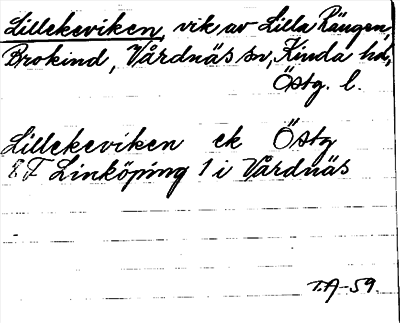 Lillekeviken, vik av Lilla Rängen,
Brokind, Vårdnäs sn, Kinda hd,
Östg. l.
Lillekeviken ek Östg
F Linköping 1 i Vårdnäs
T.A-59